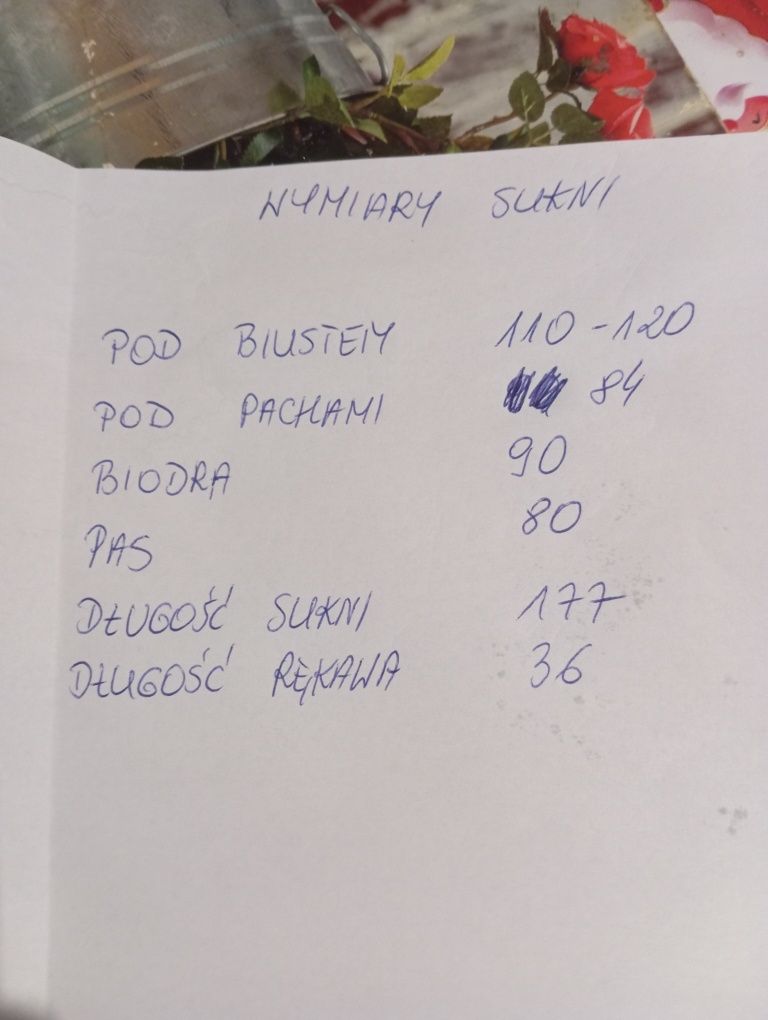 WYMIARY SUKNI
POD BIUSTEM 110-120
POD PACHAMI 84
BIODRA 90
PAS 80
DŁUGOŚĆ SUKNI 177
DŁUGOŚĆ RĘKAWA 36